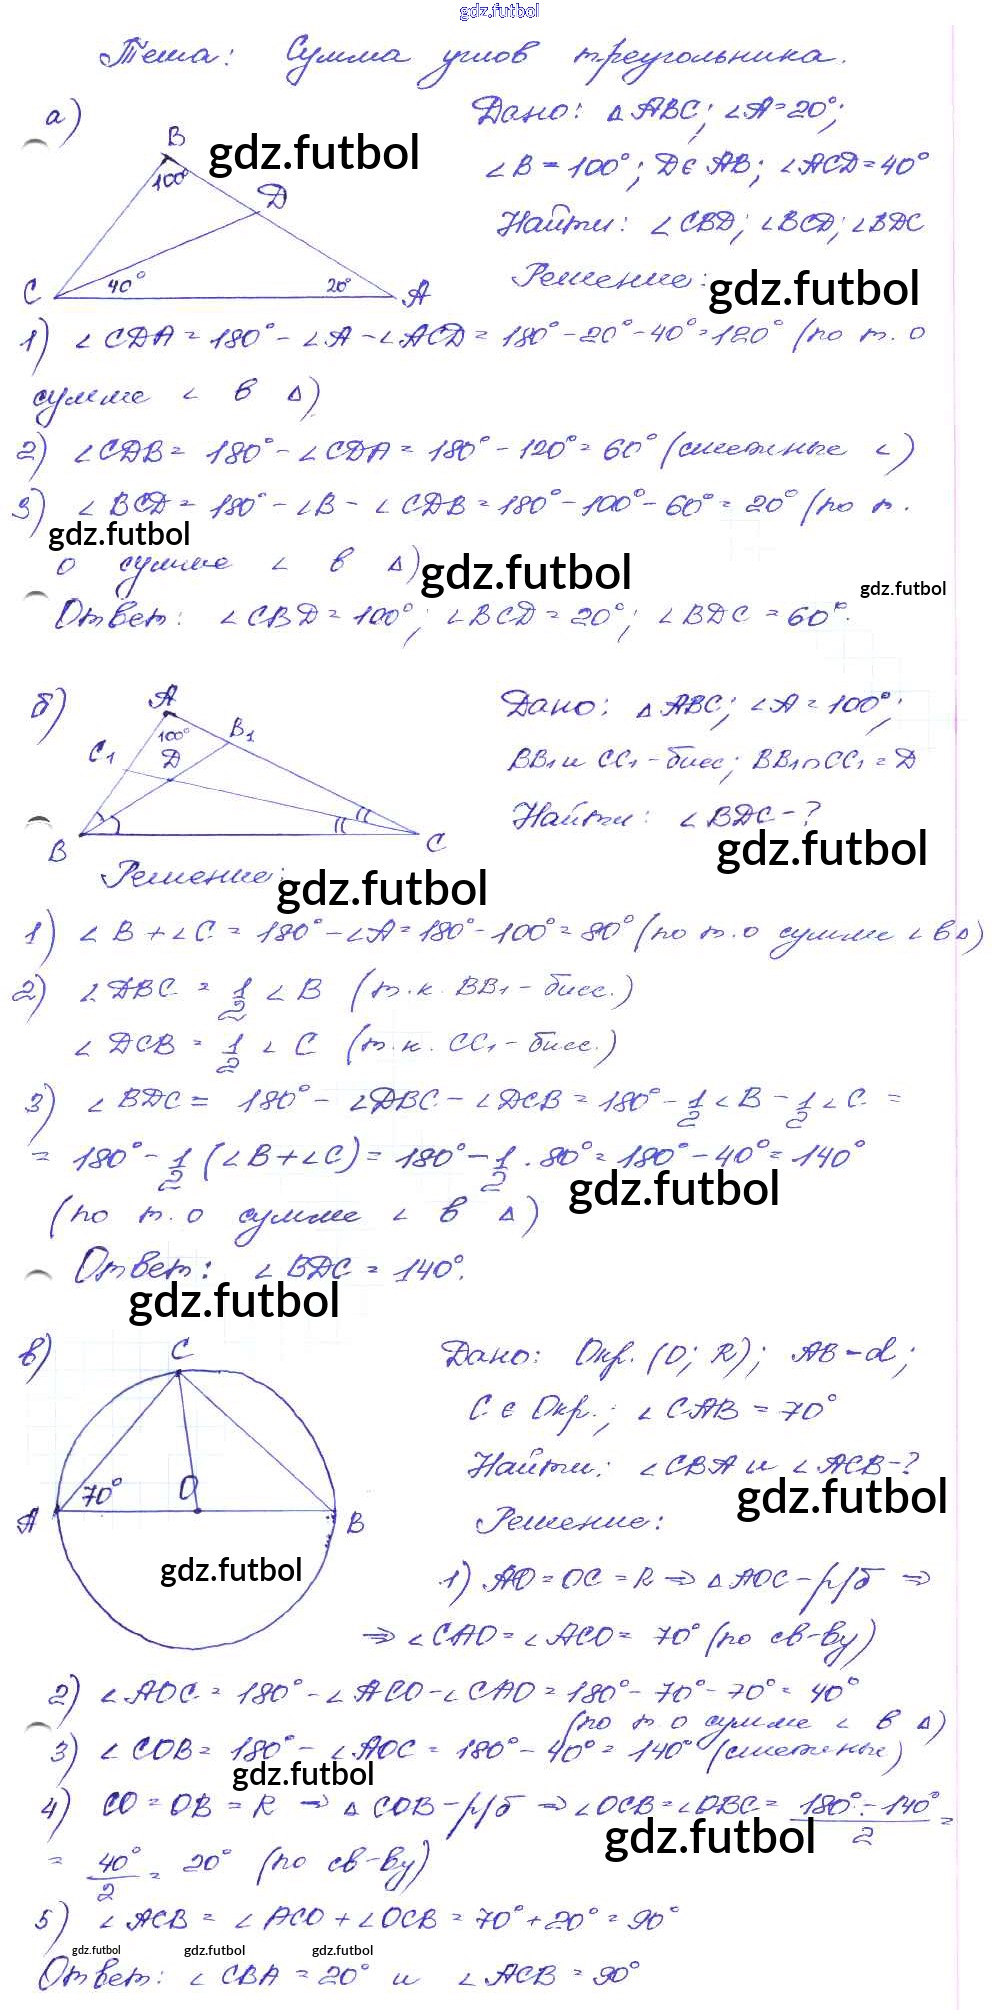 gdz.futbol
Тема: Сумма углов треугольника.
а)
B
100°
D
C
40°
20°
A
gdz.futbol
Дано: △ABC; ∠A=20°;
∠B=100°; D∈AB; ∠ACD=40°
Найти: ∠CBD; ∠BCD; ∠BDC
Решение:
gdz.futbol
1) ∠CDA = 180° - ∠A - ∠ACD = 180° - 20° - 40° = 120° (по т. о
сумме ∠ в △)
2) ∠CDB = 180° - ∠CDA = 180° - 120° = 60° (смежные ∠)
3) ∠BCD = 180° - ∠B - ∠CDB = 180° - 100° - 60° = 20° (по т.
gdz.futbol
о сумме ∠ в △)
gdz.futbol
gdz.futbol
Ответ: ∠CBD = 100°; ∠BCD = 20°; ∠BDC = 60°.
б)
A
100°
B₁
C₁
D
B
C
Дано: △ABC; ∠A = 100°;
BB₁ и CC₁ - бисс; BB₁∩CC₁ = D
Найти: ∠BDC - ?
gdz.futbol
Решение:
gdz.futbol
1) ∠B + ∠C = 180° - ∠A = 180° - 100° = 80° (по т. о сумме ∠ в △)
2) ∠DBC = 1/2 ∠B (т.к. BB₁ - бисс.)
∠DCB = 1/2 ∠C (т.к. CC₁ - бисс.)
3) ∠BDC = 180° - ∠DBC - ∠DCB = 180° - 1/2 ∠B - 1/2 ∠C =
= 180° - 1/2 (∠B + ∠C) = 180° - 1/2 · 80° = 180° - 40° = 140°
gdz.futbol
(по т. о сумме ∠ в △)
Ответ: ∠BDC = 140°.
gdz.futbol
в)
C
70°
O
A
B
gdz.futbol
Дано: Окр. (O; R); AB - d;
C ∈ Окр.; ∠CAB = 70°
Найти: ∠CBA и ∠ACB - ?
gdz.futbol
Решение:
1) AO = OC = R ⇒ △AOC - р/б ⇒
⇒ ∠CAO = ∠ACO = 70° (по св-ву)
2) ∠AOC = 180° - ∠ACO - ∠CAO = 180° - 70° - 70° = 40°
(по т. о сумме ∠ в △)
3) ∠COB = 180° - ∠AOC = 180° - 40° = 140° (смежные)
gdz.futbol
4) CO = OB = R ⇒ △COB - р/б ⇒ ∠OCB = ∠OBC = (180° - 140°)/2 =
gdz.futbol
= 40°/2 = 20° (по св-ву)
5) ∠ACB = ∠ACO + ∠OCB = 70° + 20° = 90°
gdz.futbol gdz.futbol gdz.futbol
Ответ: ∠CBA = 20° и ∠ACB = 90°